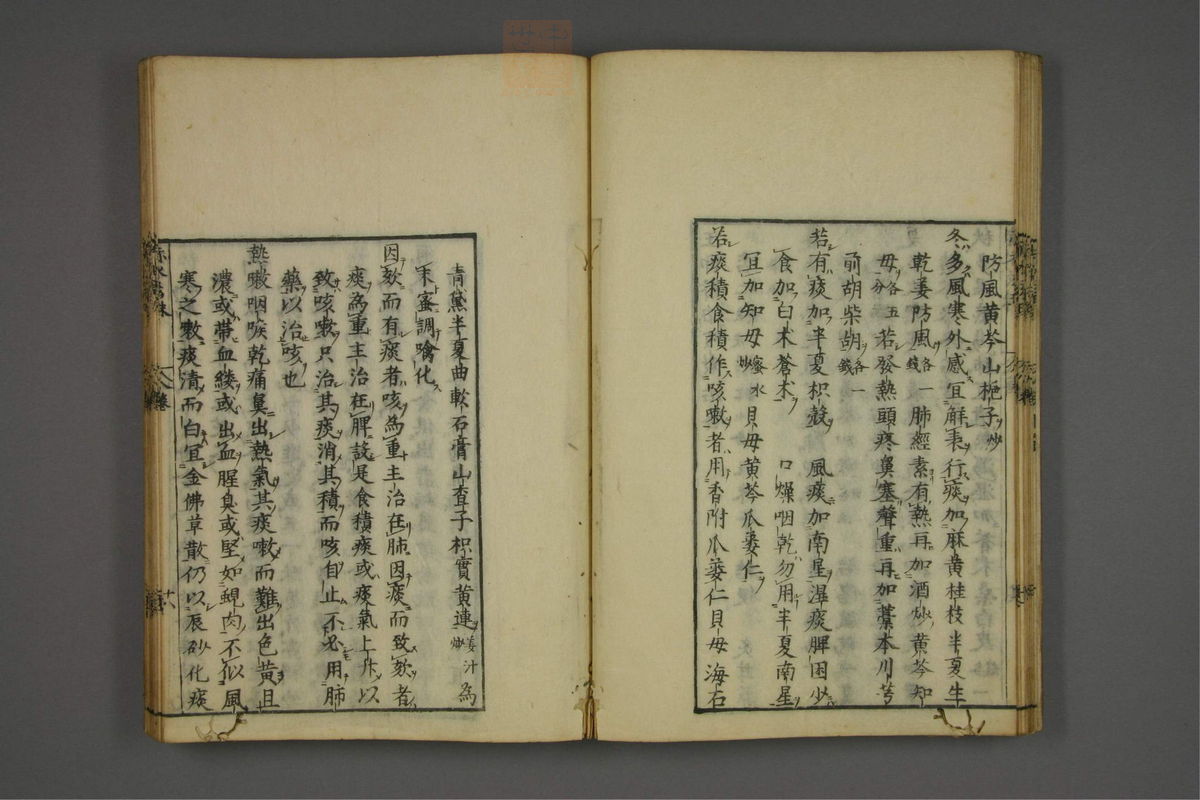 防風黄芩山梔子炒
冬多風寒外感宜解表行痰加麻黄桂枝半夏生
乾姜防風各一錢肺經素有熱再加酒炒黄芩知
母各五分若發熱頭疼鼻塞聲重再加藁本川芎
前胡柴胡各一錢
若有痰加半夏枳殻 風痰加南星湿痰脾困少
食加白术蒼术 口燥咽乾勿用半夏南星
宜加知母蜜水炒貝母黄芩瓜蔞仁
若痰積食積作咳嗽者用香附瓜蔞仁貝母海石
青黛半夏曲軟石膏山査子枳實黄連姜汁炒為
末蜜調噙化
因欬而有痰者咳為重主治在肺因痰而致欬者
痰為重主治在脾該是食積痰或痰氣上升以
致咳嗽只治其痰消其積而咳自止不必用肺
藥以治咳也
熱嗽咽喉乾痛鼻出熱氣其痰嗽而難出色黄且
濃或帶血縷或出血腥臭或堅如蜆肉不似風
寒之嗽痰清而白宜金佛草散仍以辰砂化痰